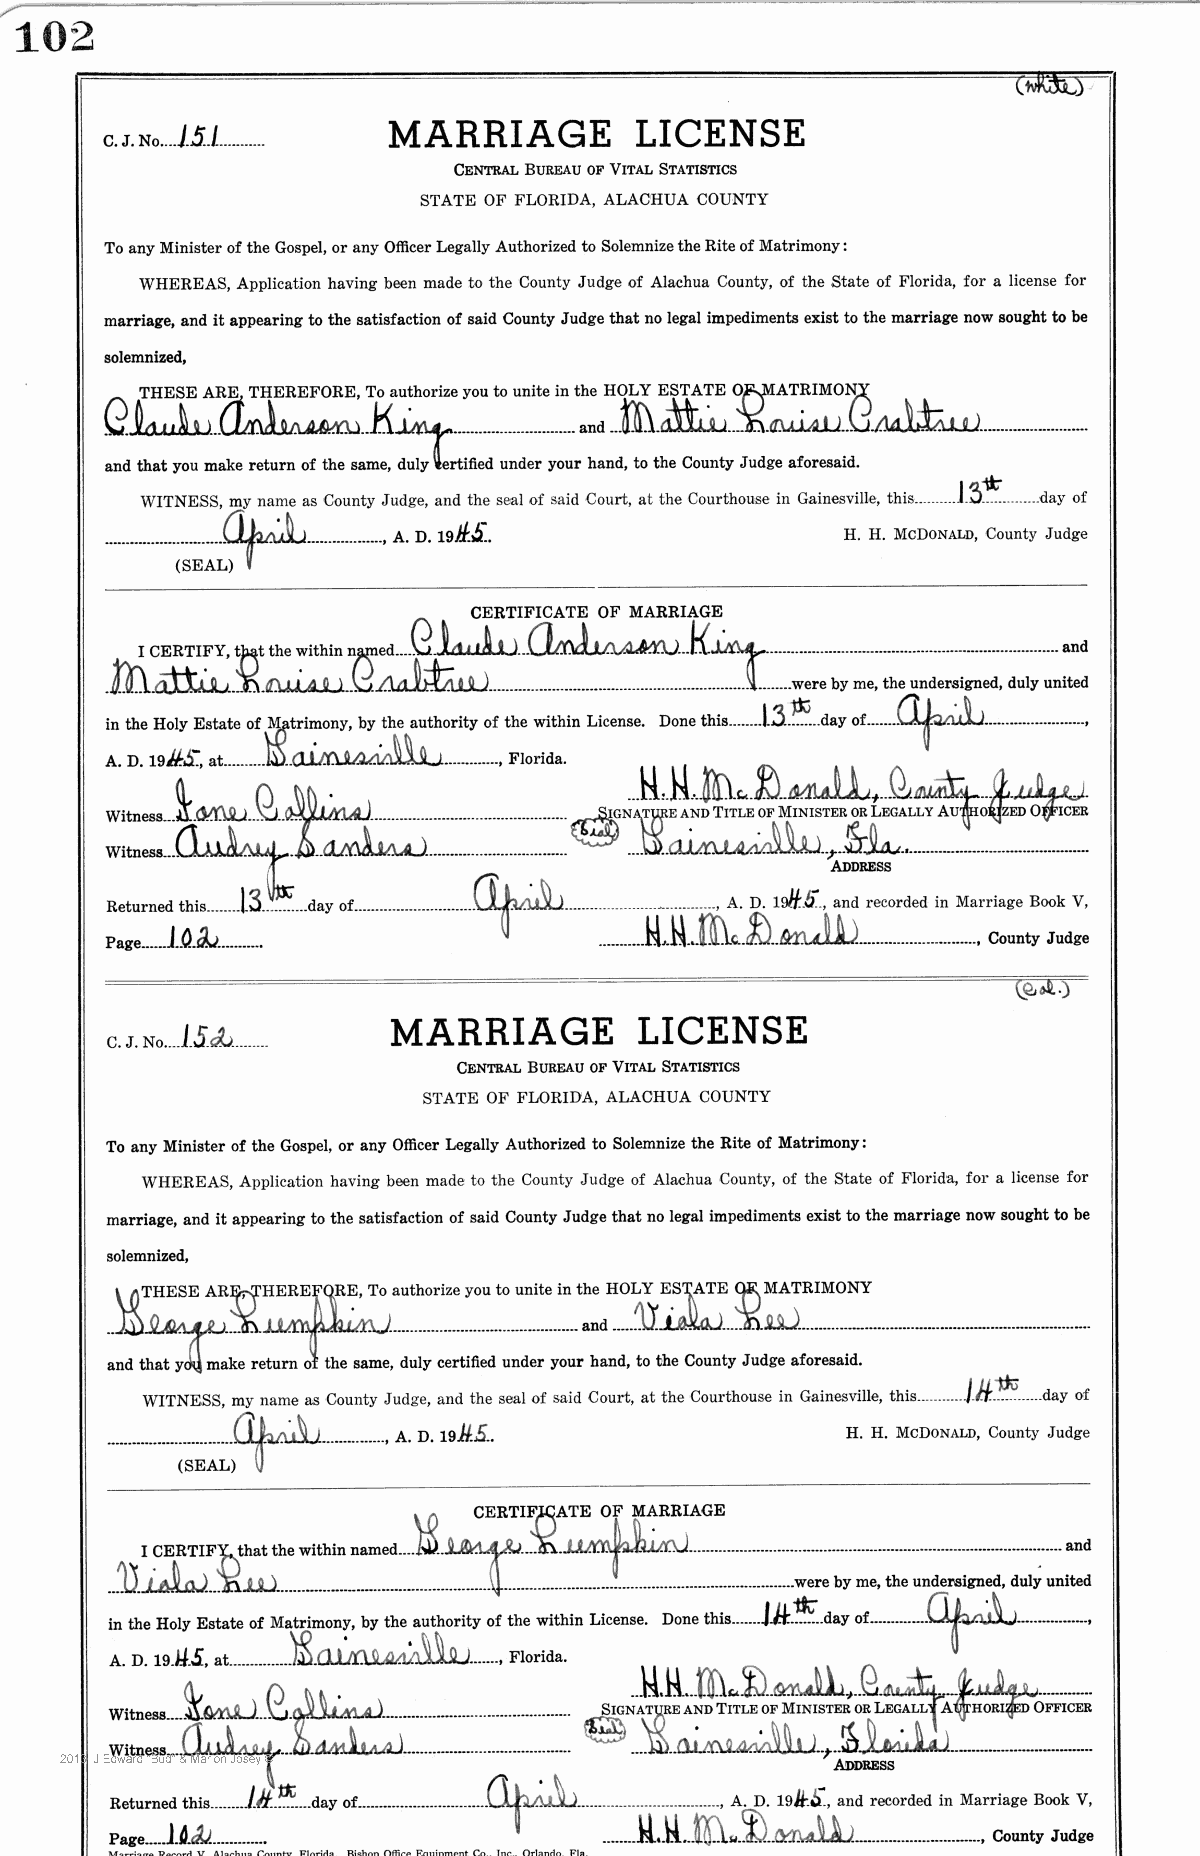 102
(white)
C. J. No. 151
MARRIAGE LICENSE
CENTRAL BUREAU OF VITAL STATISTICS
STATE OF FLORIDA, ALACHUA COUNTY
To any Minister of the Gospel, or any Officer Legally Authorized to Solemnize the Rite of Matrimony:
WHEREAS, Application having been made to the County Judge of Alachua County, of the State of Florida, for a license for
marriage, and it appearing to the satisfaction of said County Judge that no legal impediments exist to the marriage now sought to be
solemnized,
THESE ARE, THEREFORE, To authorize you to unite in the HOLY ESTATE OF MATRIMONY
Claude Anderson King and Mattie Louise Crabtree
and that you make return of the same, duly certified under your hand, to the County Judge aforesaid.
WITNESS, my name as County Judge, and the seal of said Court, at the Courthouse in Gainesville, this 13th day of
April, A. D. 1945. H. H. McDONALD, County Judge
(SEAL)
CERTIFICATE OF MARRIAGE
I CERTIFY, that the within named Claude Anderson King and
Mattie Louise Crabtree were by me, the undersigned, duly united
in the Holy Estate of Matrimony, by the authority of the within License. Done this 13th day of April,
A. D. 1945, at Gainesville, Florida.
H. H. McDonald, County Judge
Witness Ione Collins SIGNATURE AND TITLE OF MINISTER OR LEGALLY AUTHORIZED OFFICER
Witness Audrey Sanders (Seal) Gainesville, Fla.
ADDRESS
Returned this 13th day of April, A. D. 1945, and recorded in Marriage Book V,
Page 102 H. H. McDonald, County Judge
(Col.)
C. J. No. 152
MARRIAGE LICENSE
CENTRAL BUREAU OF VITAL STATISTICS
STATE OF FLORIDA, ALACHUA COUNTY
To any Minister of the Gospel, or any Officer Legally Authorized to Solemnize the Rite of Matrimony:
WHEREAS, Application having been made to the County Judge of Alachua County, of the State of Florida, for a license for
marriage, and it appearing to the satisfaction of said County Judge that no legal impediments exist to the marriage now sought to be
solemnized,
THESE ARE, THEREFORE, To authorize you to unite in the HOLY ESTATE OF MATRIMONY
George Lumpkin and Viala Lee
and that you make return of the same, duly certified under your hand, to the County Judge aforesaid.
WITNESS, my name as County Judge, and the seal of said Court, at the Courthouse in Gainesville, this 14th day of
April, A. D. 1945. H. H. McDONALD, County Judge
(SEAL)
CERTIFICATE OF MARRIAGE
I CERTIFY, that the within named George Lumpkin and
Viala Lee were by me, the undersigned, duly united
in the Holy Estate of Matrimony, by the authority of the within License. Done this 14th day of April,
A. D. 1945, at Gainesville, Florida.
H. H. McDonald, County Judge
Witness Ione Collins SIGNATURE AND TITLE OF MINISTER OR LEGALLY AUTHORIZED OFFICER
Witness Audrey Sanders (Seal) Gainesville, Florida
J Edward "Bud" & Marion Josey
ADDRESS
Returned this 14th day of April, A. D. 1945, and recorded in Marriage Book V,
Page 102 H. H. McDonald, County Judge
Marriage Record V, Alachua County, Florida, Bishop Office Equipment Co., Inc., Orlando, Fla.